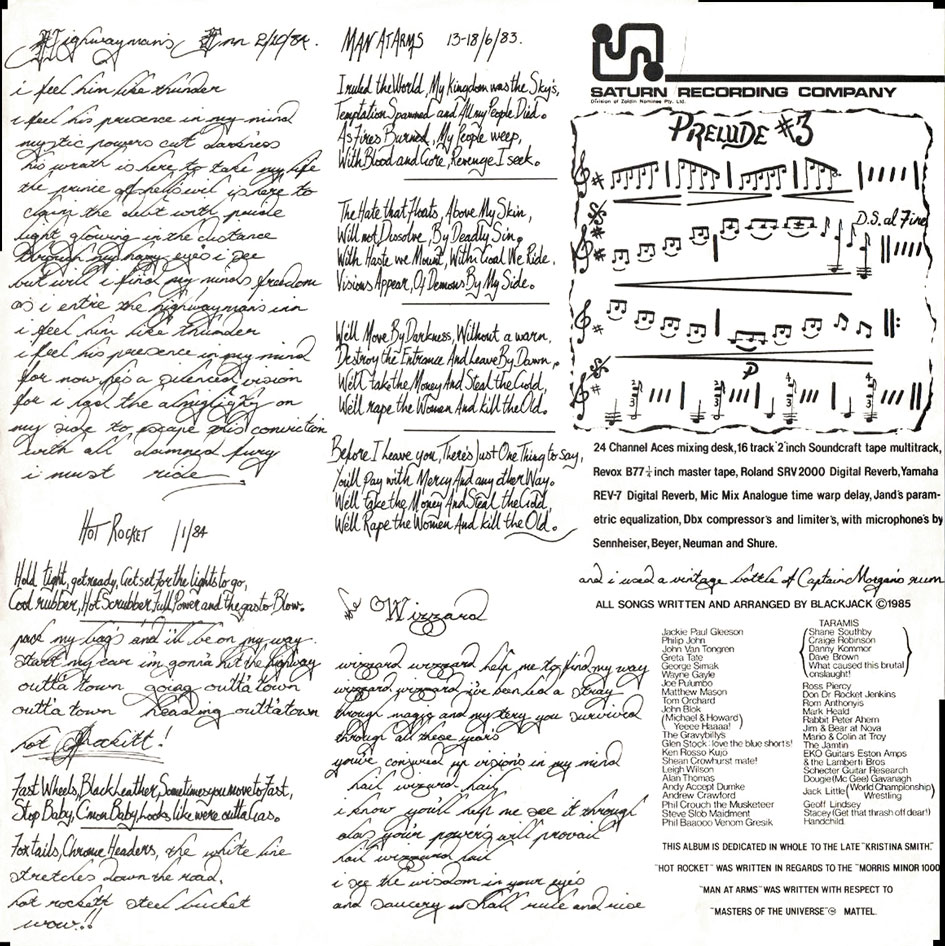 Highwayman's Inn 2/10/84.
i feel him like thunder
i feel his presence in my mind
mystic powers cut darkness
his wrath is here to take my life
the prince of hells evil is here to
claim the debt with praide
light glowing in the distance
through my hazy eyes i see
but will i find my minds freedom
as i entre the highwayman's inn
i feel him like thunder
i feel his presence in my mind
for now he's a silenced vision
for i rase the almighty on
my side to escape this conviction
with all damned fury
i must ride.
HOT ROCKET 1/1/84
Hold tight, get ready, Get set for the lights to go,
Cool rubber, Hot Scrubber Full Power and The gas to Blow.
pack my bag's and i'll be on my way
start my car i'm gonna hit the highway
outta town going outta town
outta town heading outta town
hot Rockitt!
Fast Wheels, Black Leather, Sometimes you Move to Fast,
Stop Baby, C'mon Baby Looks, like were outta Gas.
Fox tails, Chrome Headers, the white line
stretches down the road.
hot rockett steel bucket
wow!!
MAN AT ARMS 13-18/6/83.
I ruled the World, My Kingdom was the Sky's,
Temptation Spawned and All my People Died.
As Fires Burned, My People weep,
With Blood and Gore, Revenge I seek.
The Hate that Floats, Above My Skin,
Will not Dissolve, By Deadly Sin.
With Haste we Mount, With Goal We Ride,
Visions Appear, Of Demons By My Side.
We'll Move By Darkness, Without a warn,
Destroy the Entrance And Leave By Dawn.
We'll take the Money And Steal the Gold,
We'll rape the Women And kill the Old.
Before I Leave you, There's Just One Thing to say,
You'll Pay with Mercy And any other Way.
We'll take the Money And Steal the Gold
We'll Rape the Women And kill the Old.
the Wizzard
wizzard wizzard help me to find my way
wizzard wizzard i've been led a stray
through magge and mystery you survived
through all these year's
you've conjured up visions in my mind
hail wizzard hail
i know you'll help me see it through
alas your power's will prevail
hail wizzard hail
i see the wisdom in your eye's
and saucery shall rule and rise
SATURN RECORDING COMPANY
Division of Zeldin Nominee Pty. Ltd.
PRELUDE #3
D.S. al Fine
P
24 Channel Aces mixing desk, 16 track 2"inch Soundcraft tape multitrack,
Revox B77 ¼ inch master tape, Roland SRV 2000 Digital Reverb, Yamaha
REV-7 Digital Reverb, Mic Mix Analogue time warp delay, Jand's param-
etric equalization, Dbx compressor's and limiter's, with microphone's by
Sennheiser, Beyer, Neuman and Shure.
and i used a vintage bottle of Captain Morgan's rum
ALL SONGS WRITTEN AND ARRANGED BY BLACKJACK ©1985
Jackie Paul Gleeson
Philip John
John Van Tongren
Greta Tate
George Simak
Wayne Gayle
Joe Pulumbo
Matthew Mason
Tom Orchard
John Blok
(Michael & Howard)
Yeeee Haaaa!
The Gravybillys
Glen Stock: love the blue short's!
Ken Rosso Kujo
Shean Crowhurst mate!
Leigh Wilson
Alan Thomas
Andy Accept Dumke
Andrew Crawford
Phil Crouch the Musketeer
Steve Slob Maidment
Phil Baaooo Venom Gresik
TARAMIS
Shane Southby
Craige Robinson
Danny Kommor
Dave Brown
What caused this brutal
onslaught!
Ross Piercy
Don Dr Rocket Jenkins
Rom Anthonyis
Mark Heald
Rabbit Peter Ahern
Jim & Bear at Nova
Mario & Colin at Troy
The Jamtin
EKO Guitars Eston Amps
& the Lamberti Bros
Schecter Guitar Research
Dougie (Mc Gee) Gavanagh
Jack Little (World Championship)
Wrestling
Geoff Lindsey
Stacey (Get that thrash off dear!)
Handchild.
THIS ALBUM IS DEDICATED IN WHOLE TO THE LATE "KRISTINA SMITH."
"HOT ROCKET" WAS WRITTEN IN REGARDS TO THE "MORRIS MINOR 1000
"MAN AT ARMS" WAS WRITTEN WITH RESPECT TO
"MASTERS OF THE UNIVERSE"® MATTEL.